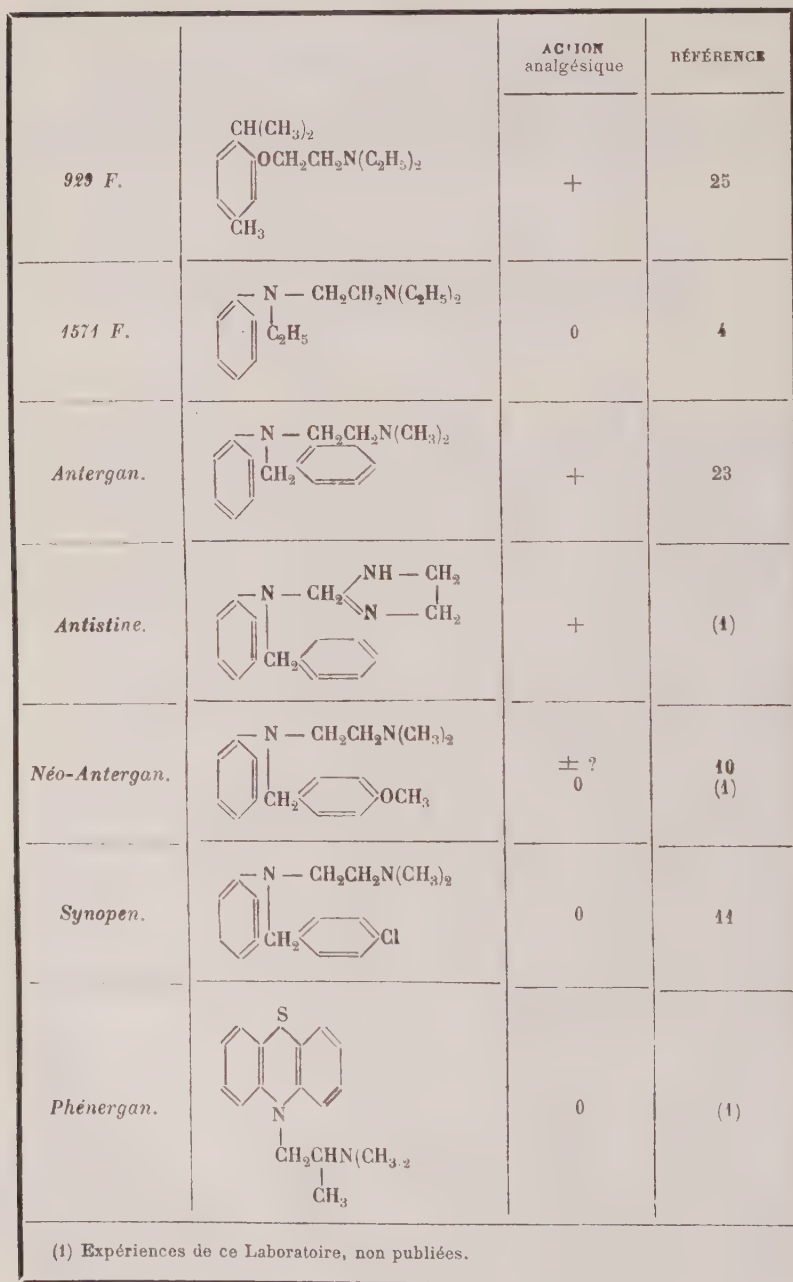 ACTION RÉFÉRENCE
analgésique
929 F.
CH(CH₃)₂
OCH₂CH₂N(C₂H₅)₂
CH₃
+
25
1571 F.
N — CH₂CH₂N(C₂H₅)₂
C₂H₅
0
4
Antergan.
N — CH₂CH₂N(CH₃)₂
CH₂
+
23
Antistine.
NH — CH₂
N — CH₂
N — CH₂
CH₂
+
(1)
Néo-Antergan.
N — CH₂CH₂N(CH₃)₂
CH₂ OCH₃
± ? 10
0 (1)
Synopen.
N — CH₂CH₂N(CH₃)₂
CH₂ Cl
0
11
Phénergan.
S
N
CH₂CHN(CH₃)₂
CH₃
0
(1)
(1) Expériences de ce Laboratoire, non publiées.